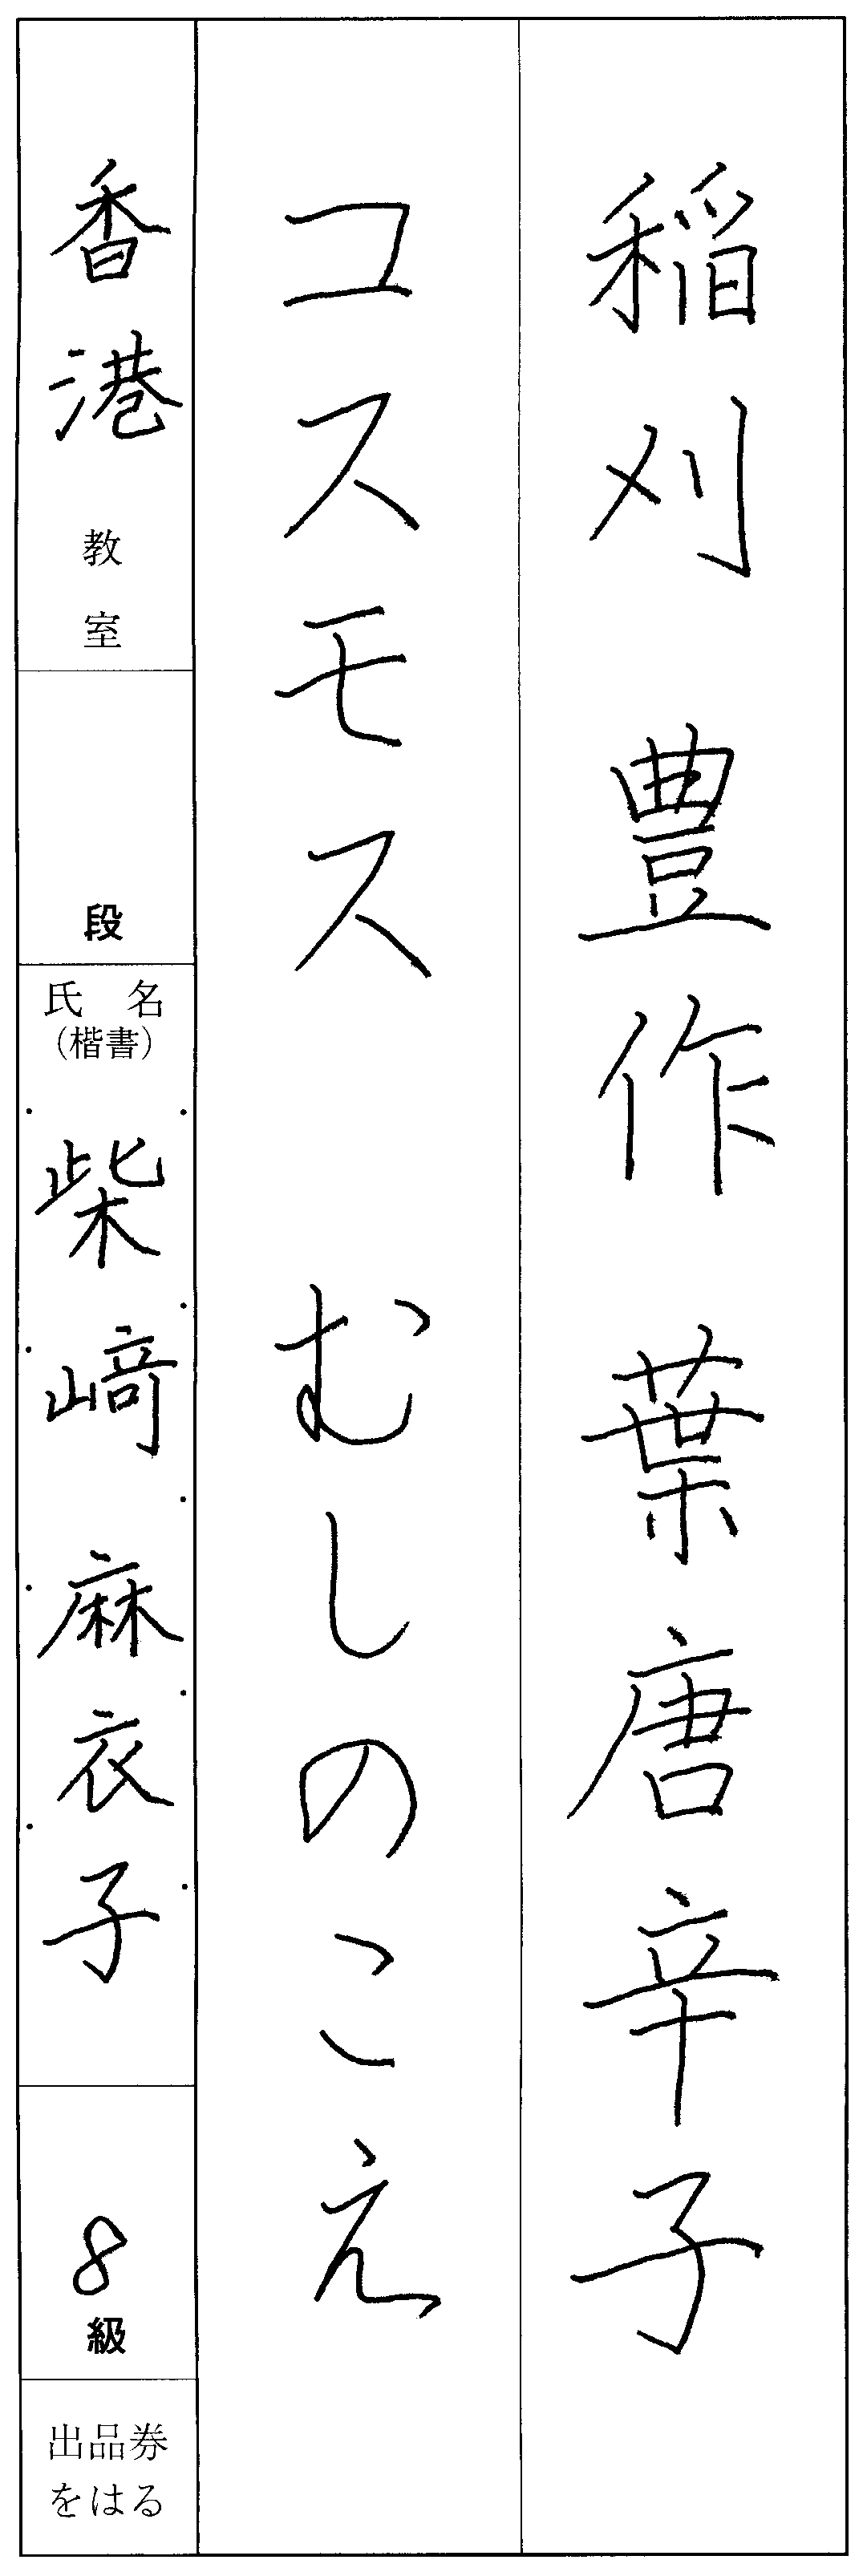 稲刈 豊作 葉唐辛子
コスモス むしのこえ
香港 教室
段
氏名
(楷書)
柴﨑 麻衣子
8級
出品券
をはる